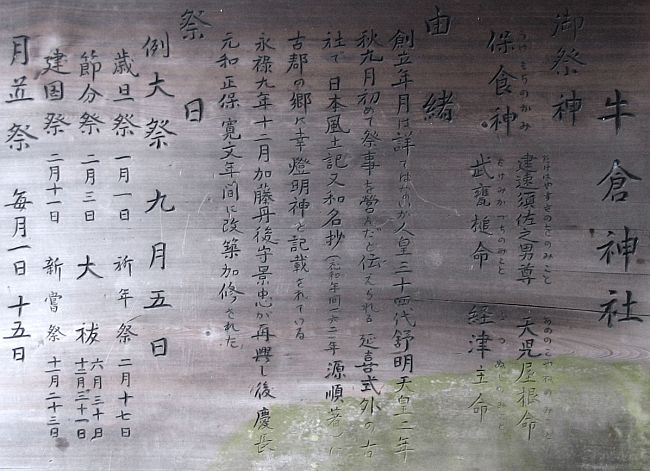 牛倉神社
御祭神
建速須佐之男尊 天児屋根命
たけはやすさのおのみこと あめのこやねのみこと
保食神 武甕槌命 経津主命
うけもちのかみ たけみかづちのみこと ふつぬしのみこと
由緒
創立年月は詳ではないのが人皇三十四代舒明天皇二年
秋九月初めて祭事を営んだと伝えられる 延喜式外の古
社で日本風土記又和名抄(元和年間一六二二年源順著)に
古郡の郷に幸燈明神と記載されている
永禄九年十二月加藤丹後守景忠が再興し後慶長
元和正保寛文年間に改築加修された
祭日
例大祭 九月五日
歳旦祭 一月一日 祈年祭 二月十七日
節分祭 二月三日 大祓 六月三十日 十二月三十一日
建国祭 二月十一日 新嘗祭 十一月二十三日
月並祭 毎月一日 十五日